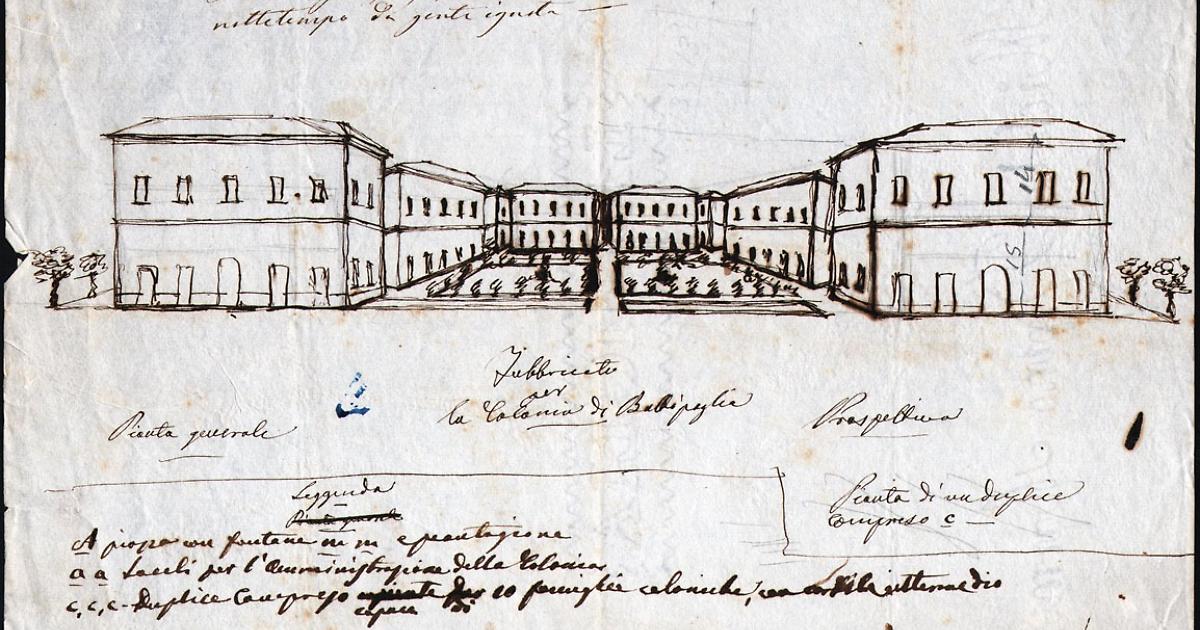 nottetempo da gente ignota —
Fabbricato
per
la Colonia di Battipaglia
Pianta generale
Prospettiva
Leggenda
Pianta generale
Pianta di un duplice
Compreso c —
A piazza con fontane m m e piantagione
a a Locali per l'Amministrazione della Colonia
c, c, c - Duplice Compreso per 10 famiglie coloniche, con cortile intermedio
capace di
14
15